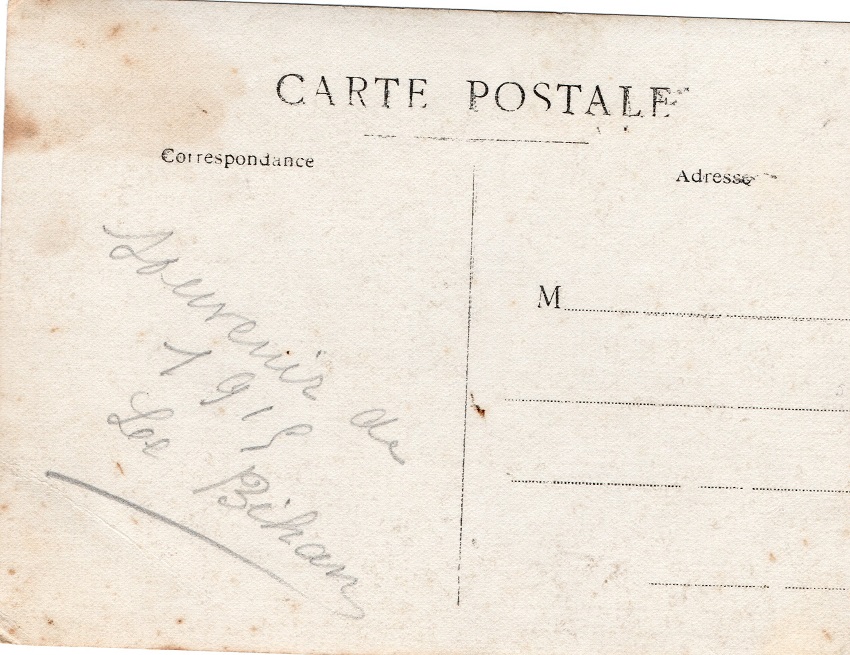 CARTE POSTALE
Correspondance
Adresse
M
Souvenir de
1915
Loe Bihan